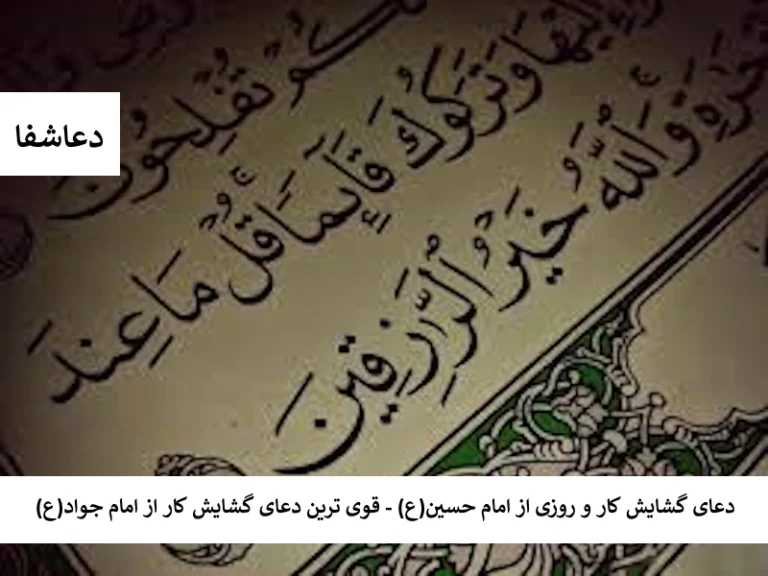 دعاشفا
كُمْ تُفْلِحُونَ
وَتَرَكُوكَ قَآئِمًا قُلْ مَا عِندَ
وَٱللَّهُ خَيْرُ ٱلرَّٰزِقِينَ
دعای گشایش کار و روزی از امام حسین(ع) - قوی ترین دعای گشایش کار از امام جواد(ع)